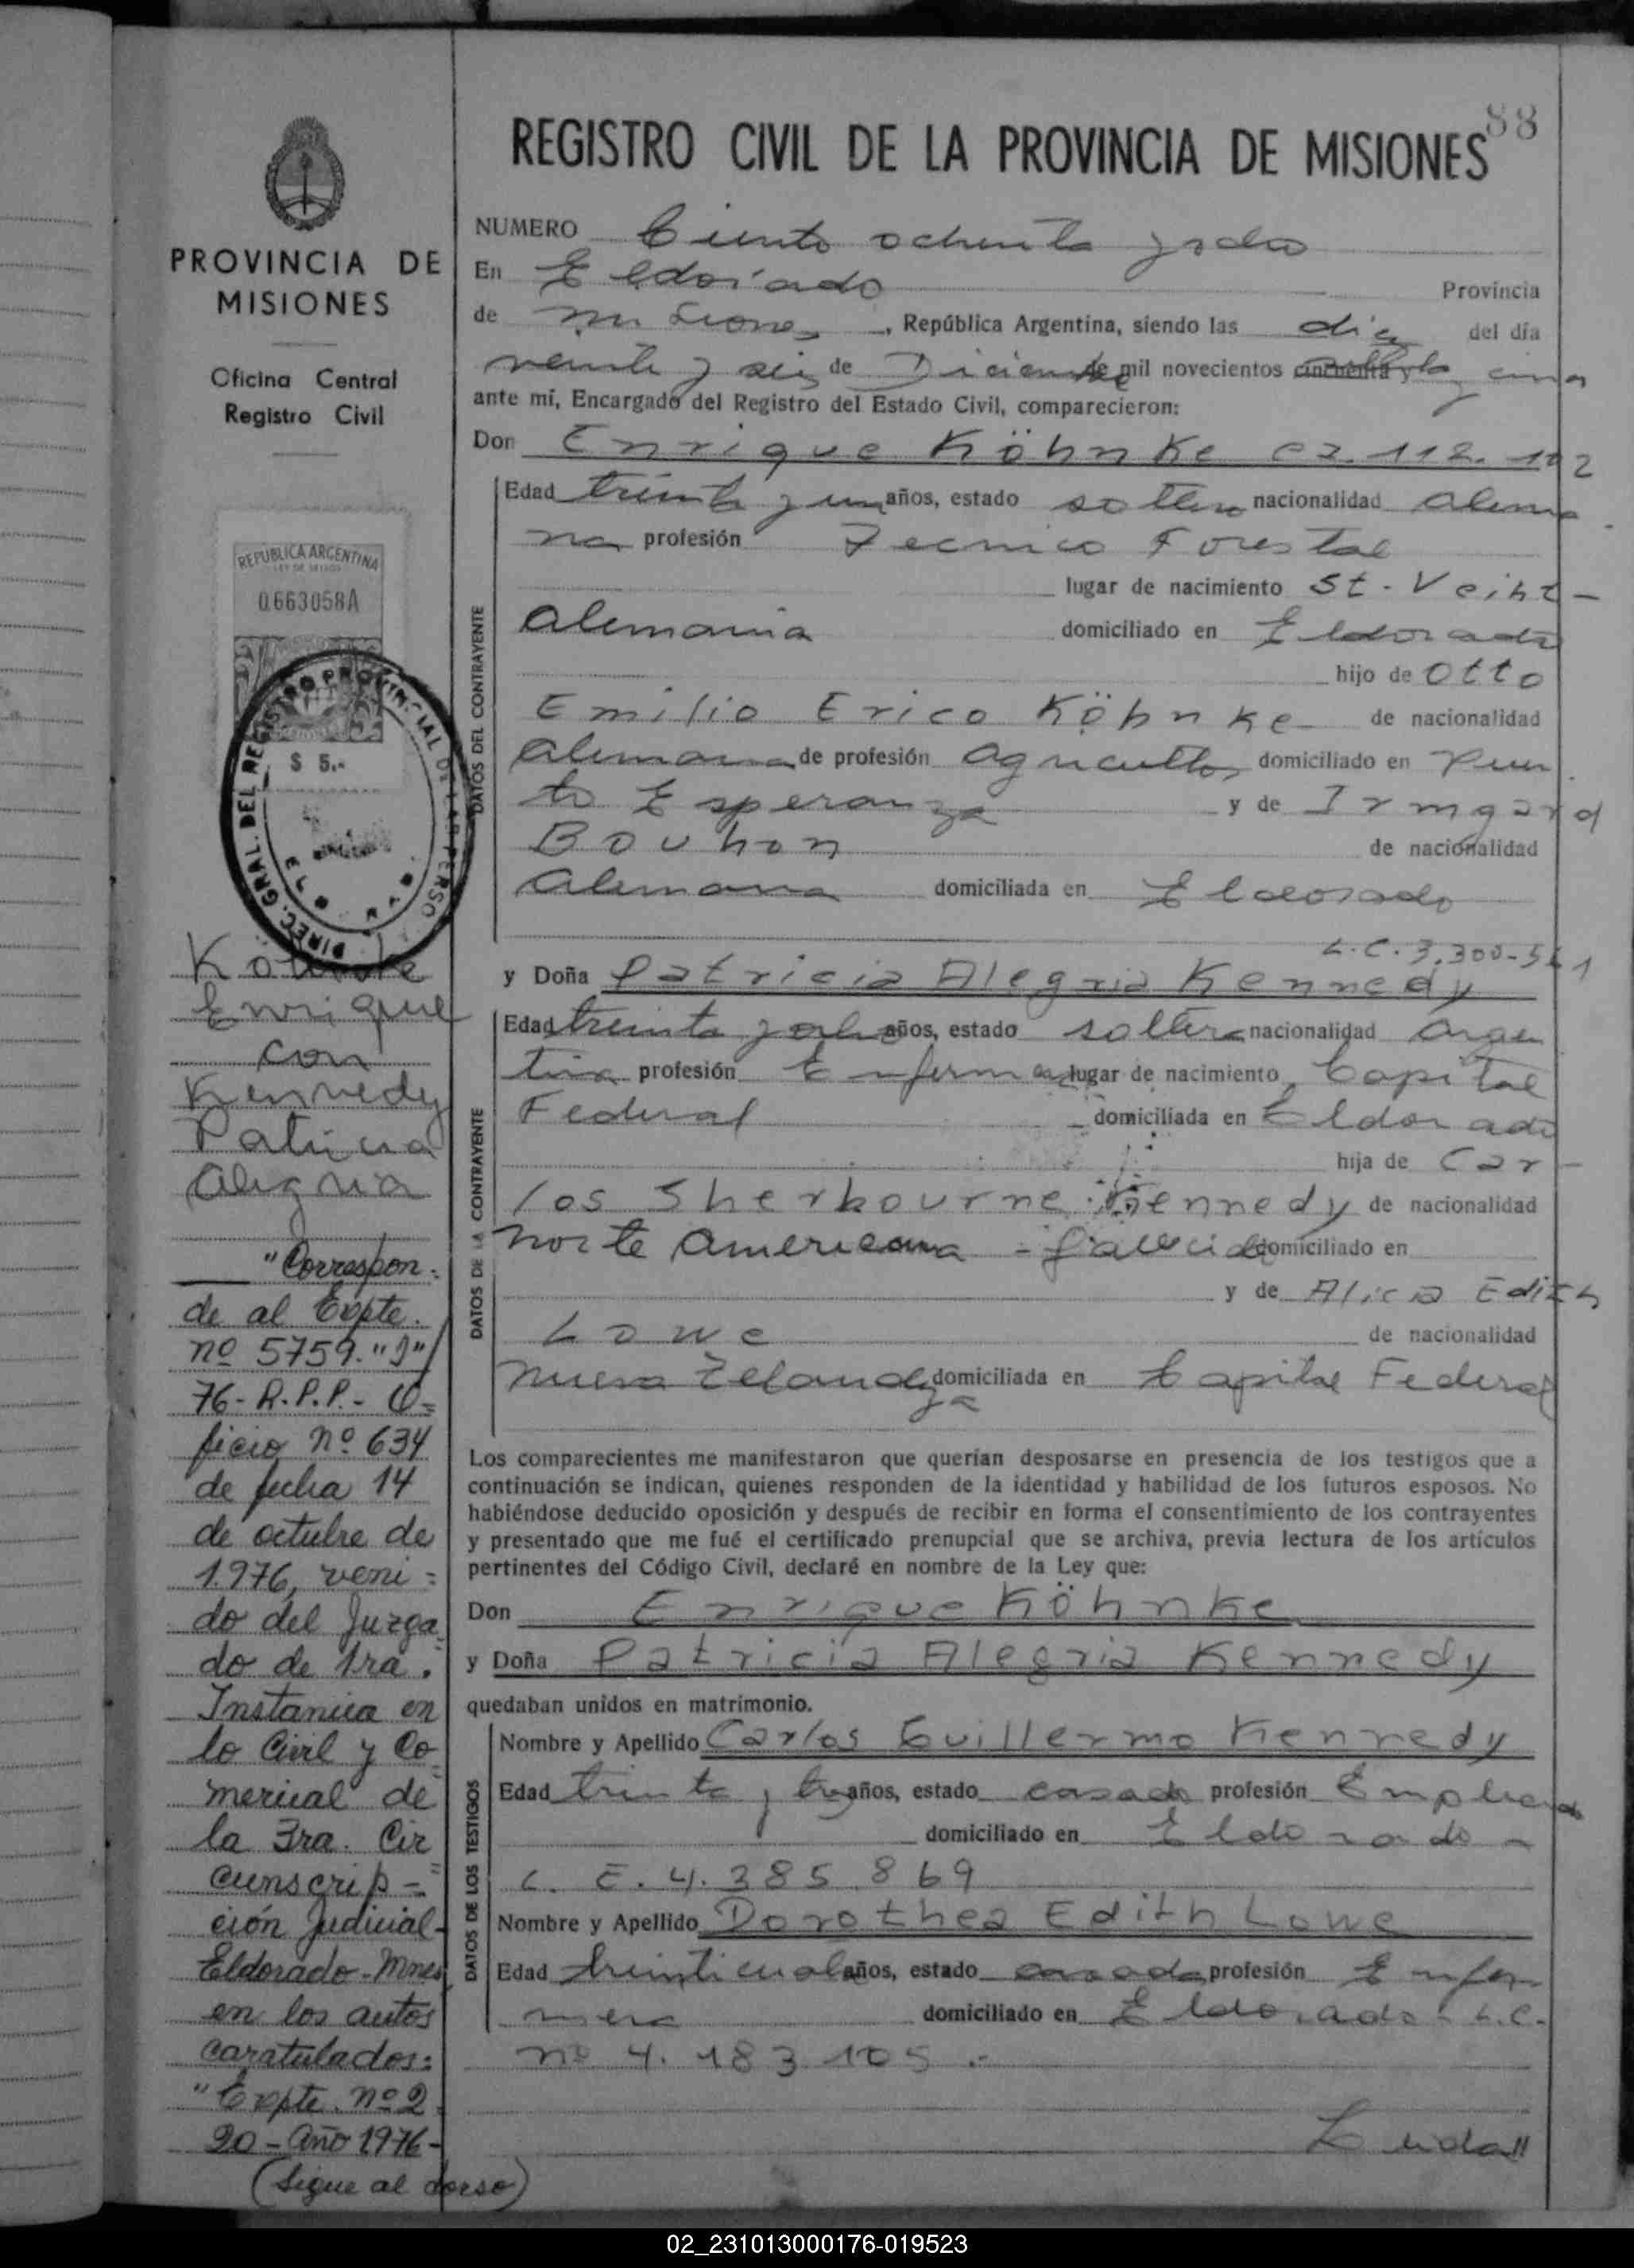 88
REGISTRO CIVIL DE LA PROVINCIA DE MISIONES
PROVINCIA DE
MISIONES
Oficina Central
Registro Civil
REPUBLICA ARGENTINA
LEY DE SELLOS
0.663058A
$ 5.-
DIREC. GRAL. DEL REGISTRO PROVINCIAL DE
Köhnke
Enrique
con
Kennedy
Patricia
Alegria
"Correspon=
de al Expte.
nº 5759."J"/
76-R.P.P.- O=
ficio nº 634
de fecha 14
de octubre de
1.976, veni=
do del Juzga=
do de 1ra.
Instancia en
lo Civil y Co=
mercial de
la 3ra. Cir=
cunscrip=
ción Judicial-
Eldorado-Mnes
en los autos
caratulados:
"Expte. nº 2
20-Año 1976-
(Sigue al dorso)
NUMERO Ciento ochenta y ocho
En Eldorado Provincia
de Misiones, República Argentina, siendo las diez del día
veinte y seis de Diciembre de mil novecientos cincuenta y
ante mí, Encargado del Registro del Estado Civil, comparecieron:
Don Enrique Köhnke 112.102
DATOS DEL CONTRAYENTE
Edad treinta y un años, estado soltero nacionalidad alema
na profesión Tecnico Forestal
lugar de nacimiento St. Veiht-
Alemania domiciliado en Eldorado
hijo de Otto
Emilio Erico Köhnke de nacionalidad
alemana de profesión agricultor domiciliado en Puer
to Esperanza y de Irmgard
Bouhon de nacionalidad
Alemana domiciliada en Eldorado
L.C. 3.300-
y Doña Patricia Alegria Kennedy
DATOS DE LA CONTRAYENTE
Edad treinta y ocho años, estado soltera nacionalidad argen
tina profesión Enfermera lugar de nacimiento Capital
Federal domiciliada en Eldorado
hija de Car-
los Sherbourne Kennedy de nacionalidad
norte americana - fallecido domiciliado en
y de Alicia Edith
Lowe de nacionalidad
nueva Zelandeza domiciliada en Capital Federal
Los comparecientes me manifestaron que querían desposarse en presencia de los testigos que a
continuación se indican, quienes responden de la identidad y habilidad de los futuros esposos. No
habiéndose deducido oposición y después de recibir en forma el consentimiento de los contrayentes
y presentado que me fué el certificado prenupcial que se archiva, previa lectura de los artículos
pertinentes del Código Civil, declaré en nombre de la Ley que:
Don Enrique Köhnke
y Doña Patricia Alegria Kennedy
quedaban unidos en matrimonio.
DATOS DE LOS TESTIGOS
Nombre y Apellido Carlos Guillermo Kennedy
Edad treinta y tres años, estado casado profesión Empleado
domiciliado en Eldorado -
C. E. 4.385.869
Nombre y Apellido Dorothea Edith Lowe
Edad treinticuatro años, estado casada profesión Enfer
mera domiciliado en Eldorado L.C.
nº 4.183.105.-
02_231013000176-019523